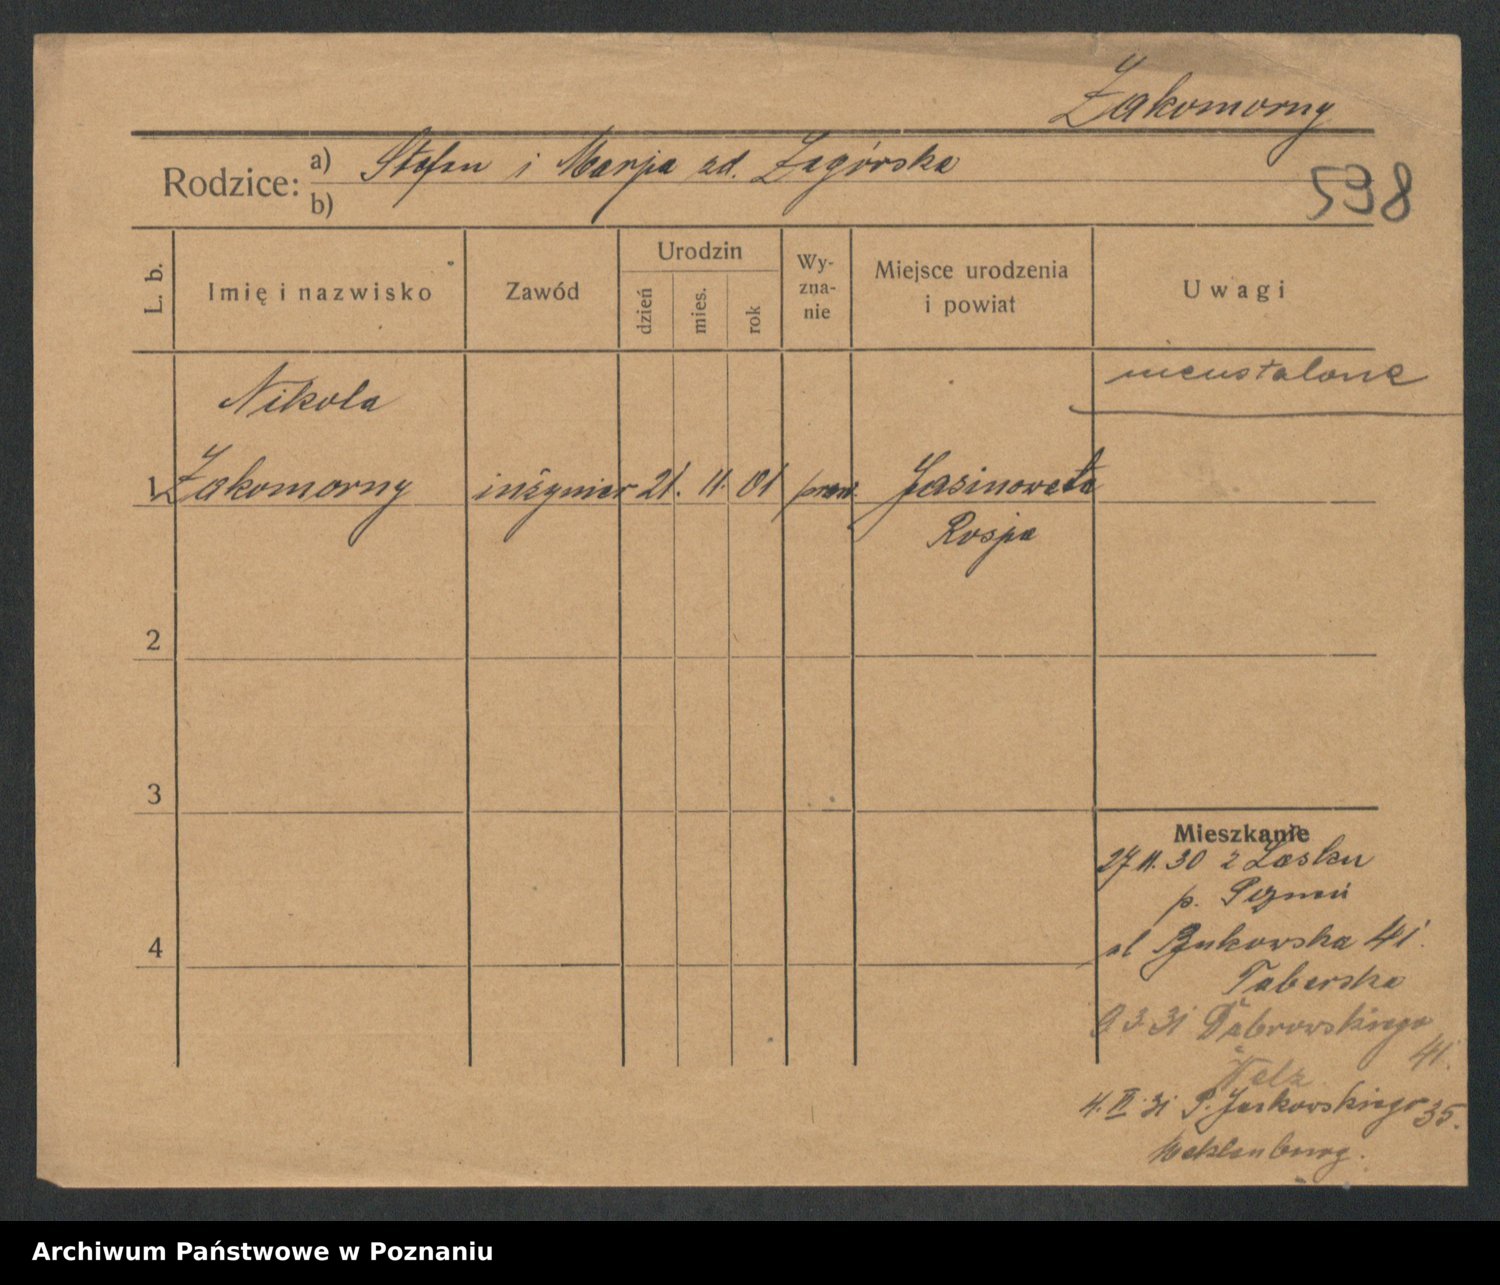 Zakomorny
Rodzice: a) Stefan i Marja zd. Zagórska
b)
598
L. b. Imię i nazwisko Zawód Urodzin dzień mies. rok Wy-zna-nie Miejsce urodzenia i powiat Uwagi
nieustalone
Nikola
1 Zakomorny inżynier 21. 11. 01 praw. Jasinowata
Rosja
2
3
4
Mieszkanie
27 11. 30 z Lasku
p. Poznań
ul Bukowska 41.
Taberska
9 3 31 Dąbrowskiego
41.
Welz
4. 31 P. Jackowskiego 35.
Meklenburg.
Archiwum Państwowe w Poznaniu